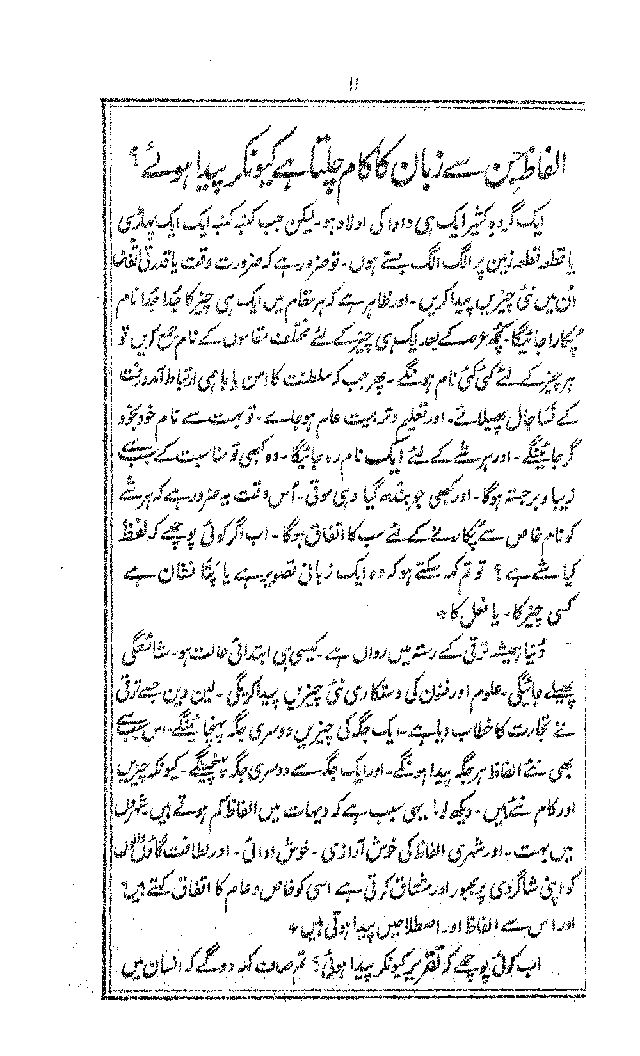 ۱۱
الفاظ جن سے زبان کا کام چلتا ہے کیونکر پیدا ہوئے؟
ایک گروہ کثیر ایک ہی دادا کی اولاد ہو۔ لیکن جب کنبہ کنبہ ایک ایک پہاڑی
یا قطعہ قطعہ زمین پر الگ الگ بستے ہوں۔ تو ضرور ہے کہ ضرورت وقت یا قدرتی اتفاق
اُن میں نئی چیزیں پیدا کریں۔ اور ظاہر ہے کہ ہر مقام میں ایک ہی چیز کا جُدا جُدا نام
پُکارا جائیگا۔ کچھ عرصہ کے بعد ایک ہی چیز کے لئے مختلف مقاموں کے نام جمع کریں تو
ہر چیز کے لئے کئی کئی نام ہونگے۔ پھر جب کہ سلطنت کا امن یا باہمی ارتباط آمد و رفت
کے جال پھیلائے۔ اور تعلیم و تربیت عام ہو جائے۔ تو بہت سے نام خود بخود
گر جائینگے۔ اور ہر شے کے لئے ایک نام رہ جائیگا۔ وہ کبھی تو مناسبت کے سبب سے
زیبا و برجستہ ہوگا۔ اور کبھی جو بندھ گیا وہی موتی۔ اُس وقت یہ ضرور ہے کہ ہر شے
کو نام خاص سے پُکارنے کے لئے سب کا اتفاق ہوگا۔ اب اگر کوئی پوچھے کہ لفظ
کیا شے ہے؟ تو تم کہہ سکتے ہو کہ وہ ایک زبانی تصویر ہے یا پتا نشان ہے
کسی چیز کا۔ یا فعل کا *
دُنیا ہمیشہ ترقی کے رستہ میں رواں ہے۔ کیسی ہی ابتدائی حالت ہو۔ شائستگی
پھیلے جائیگی۔ علوم اور فنون کی دستکاری نئی چیزیں پیدا کریگی۔ لین دین جسے ترقی
نے تجارت کا خطاب دیا ہے۔ ایک جگہ کی چیزیں دوسری جگہ پہنچائینگے۔ اس سبب سے
بھی نئے الفاظ ہر جگہ پیدا ہونگے۔ اور ایک جگہ سے دوسری جگہ پہنچینگے۔ کیونکہ چیزیں
اور کام نئے ہیں۔ دیکھ لو! یہی سبب ہے کہ دیہات میں الفاظ کم ہوتے ہیں شہروں
میں بہت۔ اور شہری الفاظ کی خوش آوازی۔ خوش ادائی۔ اور لطافت گاؤں والوں
کو اپنی شاگردی پر مجبور اور مشتاق کرتی ہے اسی کو خاص و عام کا اتفاق کہتے ہیں؟
اور اس سے الفاظ اور اصطلاحیں پیدا ہوتی ہیں *
اب کوئی پوچھے کہ تقریر کیونکر پیدا ہوئی؟ تم صاف کہہ دو گے کہ انسان میں